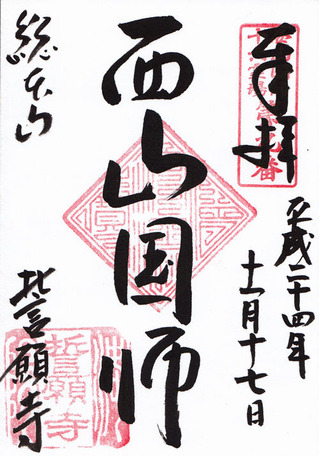 奉拝
平成二十四年
十一月十七日
西山国師
総本山
誓願寺
誓願寺